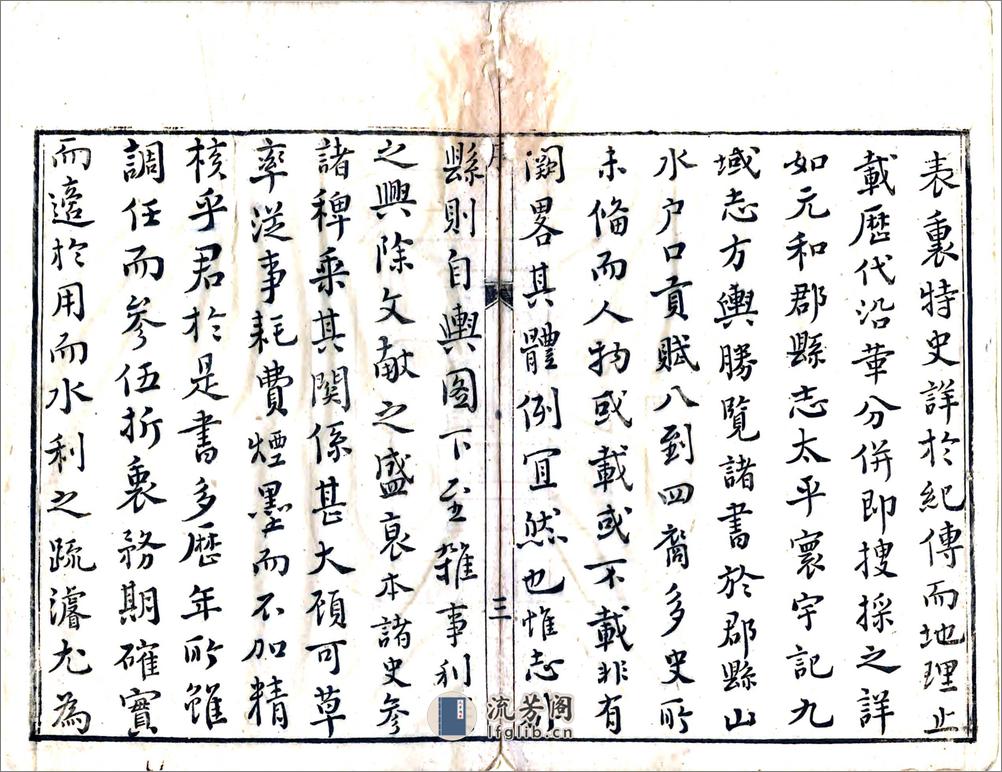 表裏特史詳於紀傳而地理止
載歷代沿革分併即搜採之詳
如元和郡縣志太平寰宇記九
域志方輿勝覽諸書於郡縣山
水户口貢賦八到四裔多史所
未俻而人物或載或不載非有
濶畧其體例冝然也惟志州
序
三
縣則自輿圖下至雜事利
之興除文献之盛衰本諸史參
諸稗乘其関係甚大顧可草
率從事耗費煙墨而不加精
核乎君於是書多歷年所雖
調任而參伍折衷務期確實
而適於用而水利之疏濬尤為
流芳阁
lfglib.cn